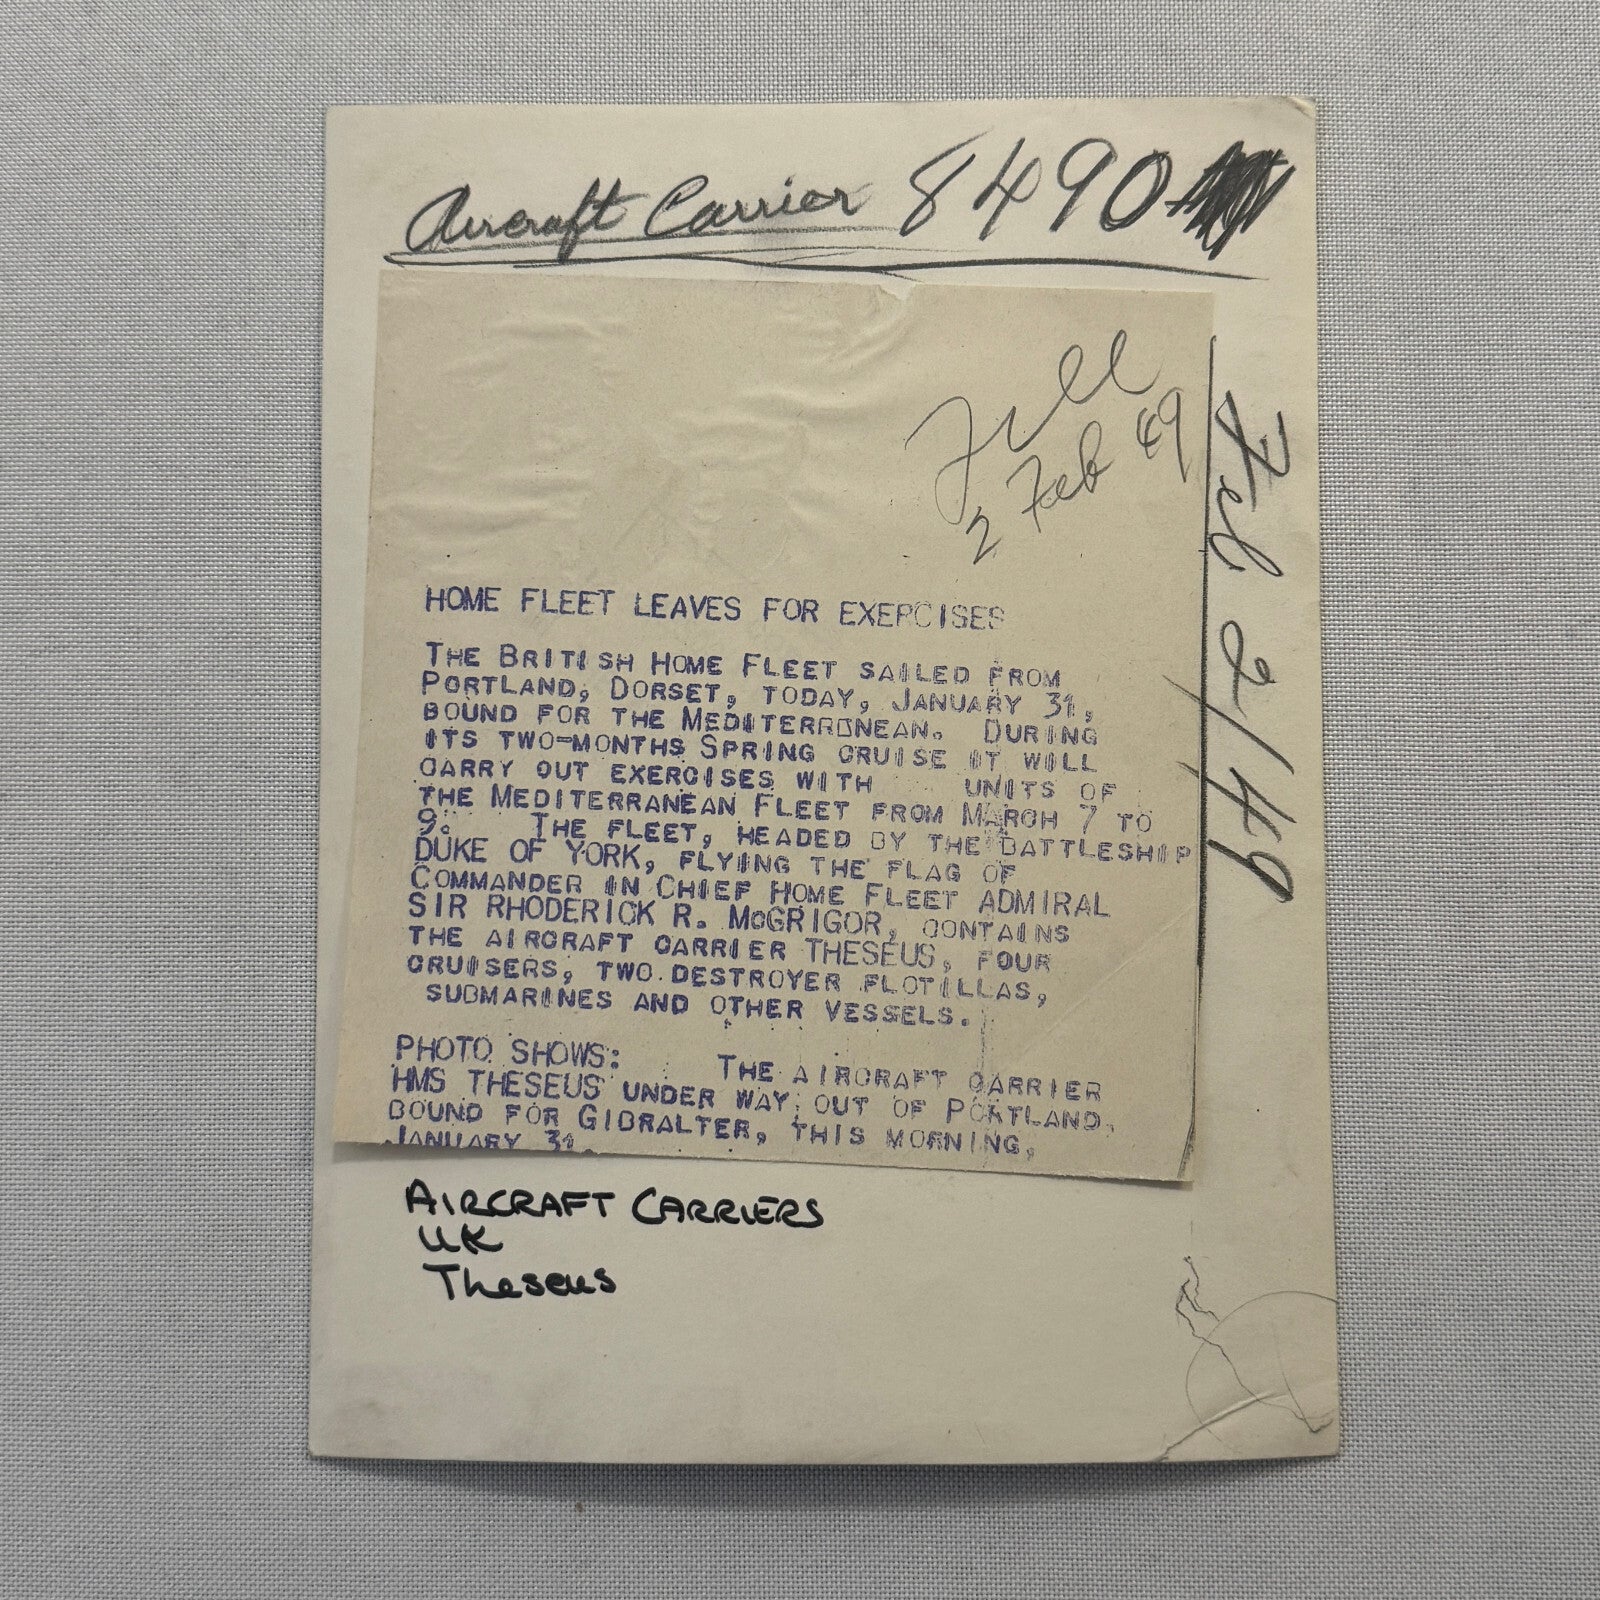 Aircraft Carrier 8490
2 Feb 49
Feb 2/49
HOME FLEET LEAVES FOR EXERCISES
THE BRITISH HOME FLEET SAILED FROM
PORTLAND, DORSET, TODAY, JANUARY 31,
BOUND FOR THE MEDITERRONEAN. DURING
ITS TWO-MONTHS SPRING CRUISE IT WILL
CARRY OUT EXERCISES WITH UNITS OF
THE MEDITERRANEAN FLEET FROM MARCH 7 TO
9. THE FLEET, HEADED BY THE BATTLESHIP
DUKE OF YORK, FLYING THE FLAG OF
COMMANDER IN CHIEF HOME FLEET ADMIRAL
SIR RHODERICK R. McGRIGOR, CONTAINS
THE AIRCRAFT CARRIER THESEUS, FOUR
CRUISERS, TWO DESTROYER FLOTILLAS,
SUBMARINES AND OTHER VESSELS.
PHOTO SHOWS: THE AIRCRAFT CARRIER
HMS THESEUS UNDER WAY OUT OF PORTLAND,
BOUND FOR GIBRALTER, THIS MORNING,
JANUARY 31.
AIRCRAFT CARRIERS
UK
Theseus